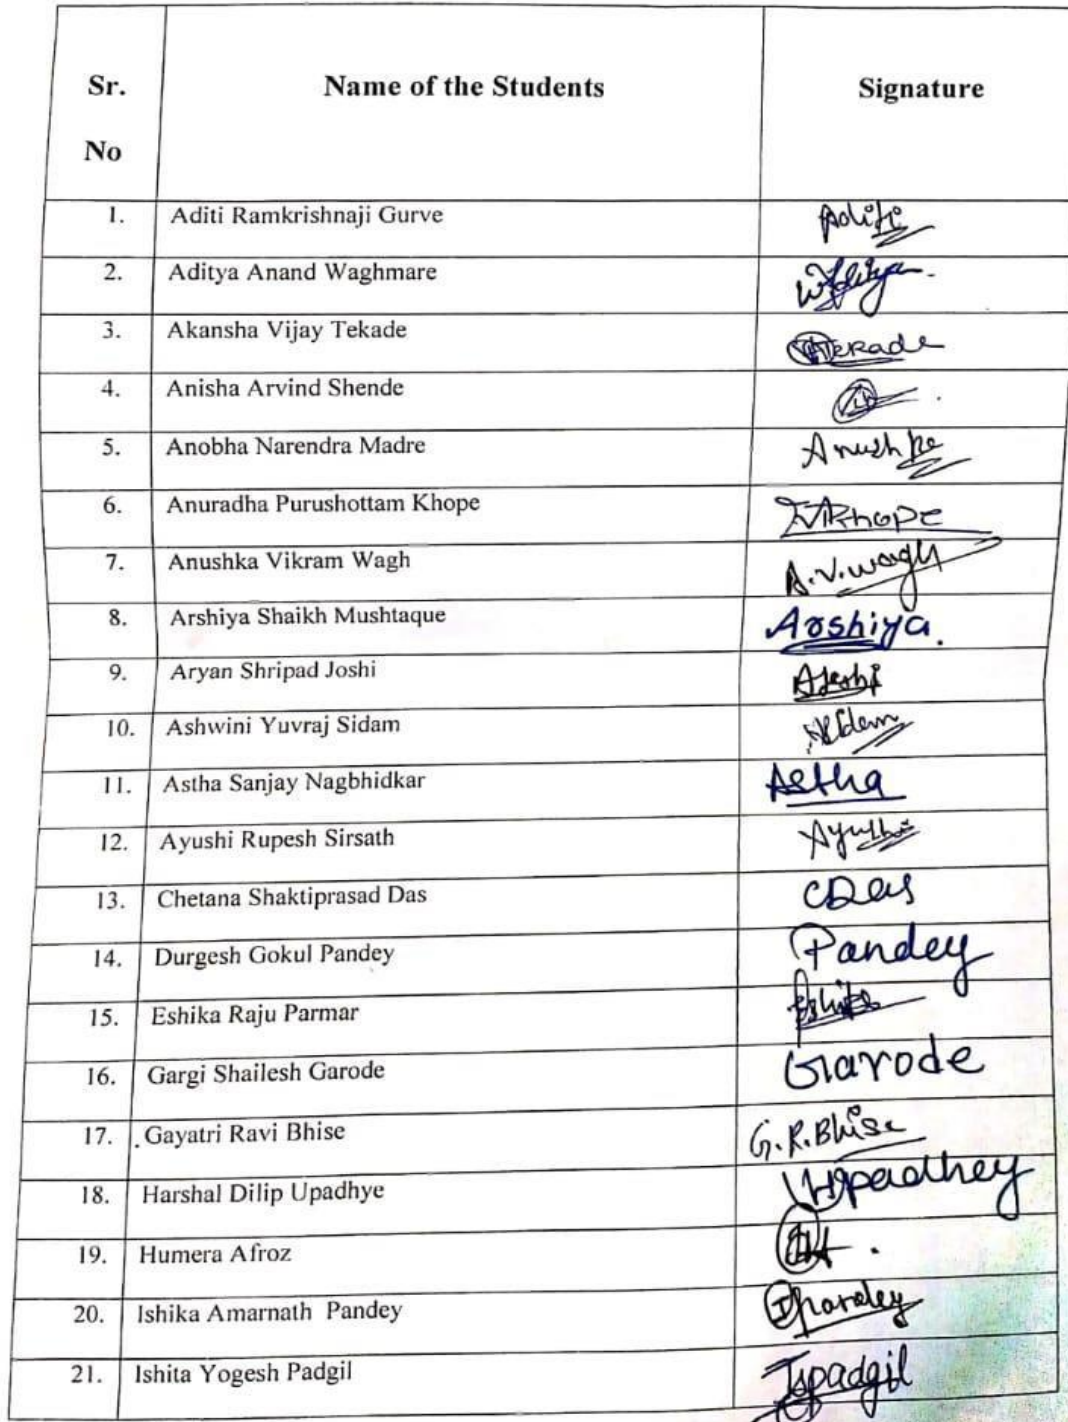 Sr. No Name of the Students Signature
1. Aditi Ramkrishnaji Gurve Aditi
2. Aditya Anand Waghmare
3. Akansha Vijay Tekade Tekade
4. Anisha Arvind Shende
5. Anobha Narendra Madre
6. Anuradha Purushottam Khope Khope
7. Anushka Vikram Wagh A.V.wagh
8. Arshiya Shaikh Mushtaque Arshiya.
9. Aryan Shripad Joshi AJoshi
10. Ashwini Yuvraj Sidam
11. Astha Sanjay Nagbhidkar Astha
12. Ayushi Rupesh Sirsath Ayushi
13. Chetana Shaktiprasad Das CDas
14. Durgesh Gokul Pandey Pandey
15. Eshika Raju Parmar Eshika
16. Gargi Shailesh Garode Garode
17. Gayatri Ravi Bhise G.R.Bhise
18. Harshal Dilip Upadhye
19. Humera Afroz
20. Ishika Amarnath Pandey IPandey
21. Ishita Yogesh Padgil